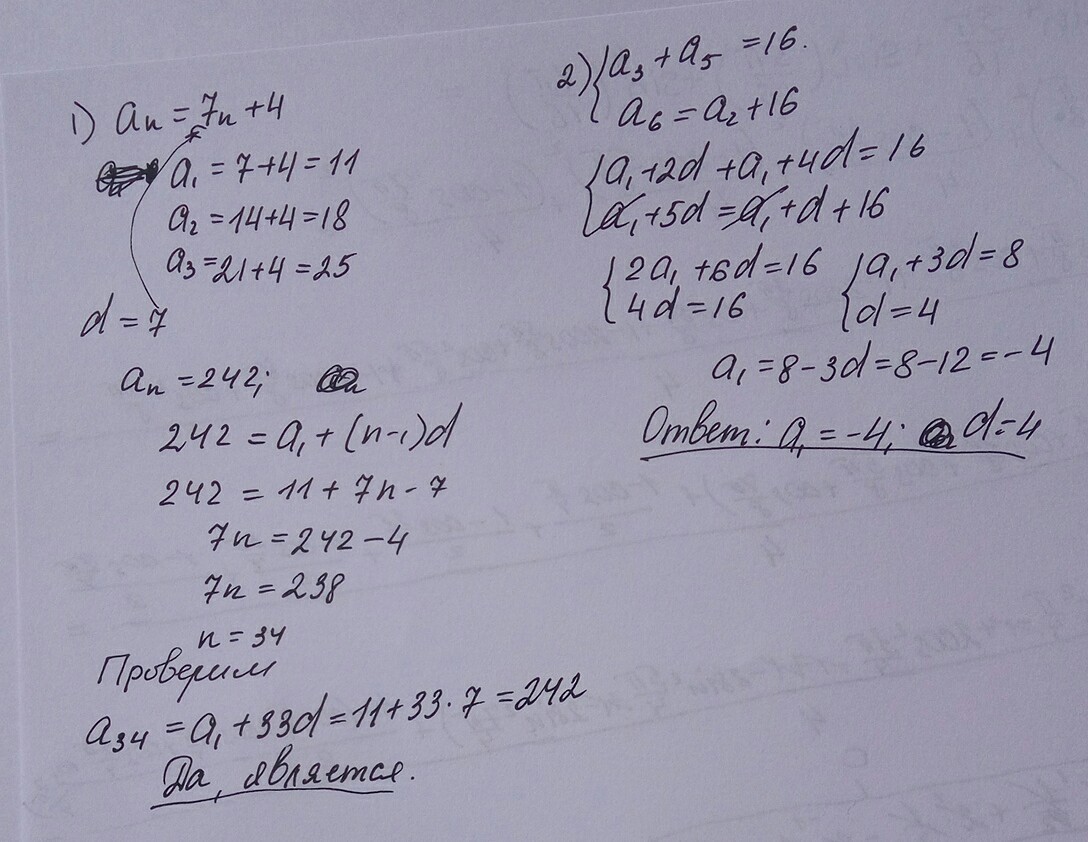 1) aₙ = 7n + 4
a₁ = 7+4 = 11
a₂ = 14+4 = 18
a₃ = 21+4 = 25
d = 7
aₙ = 242;
242 = a₁ + (n-1)d
242 = 11 + 7n - 7
7n = 242 - 4
7n = 238
n = 34
Проверим
a₃₄ = a₁ + 33d = 11 + 33 · 7 = 242
Да, является.
2) { a₃ + a₅ = 16.
a₆ = a₂ + 16
{ a₁ + 2d + a₁ + 4d = 16
a₁ + 5d = a₁ + d + 16
{ 2a₁ + 6d = 16 { a₁ + 3d = 8
4d = 16 d = 4
a₁ = 8 - 3d = 8 - 12 = -4
Ответ: a₁ = -4; d = 4